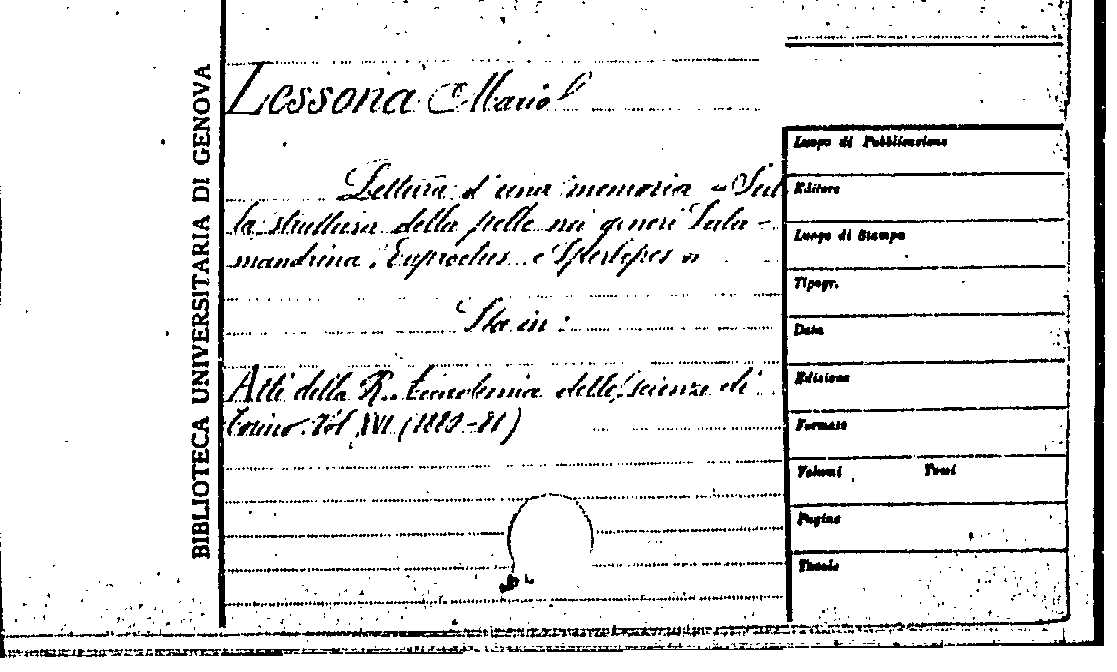 BIBLIOTECA UNIVERSITARIA DI GENOVA
Lessona Mario
Lettura d'una memoria "Sul
la struttura della pelle nei generi Sala-
mandrina, Euproctus e Spelerpes"
Sta in:
Atti della R. Accademia delle Scienze di
Torino. Vol XVI (1880-81)
Luogo di Pubblicazione
Editore
Luogo di Stampa
Tipogr.
Data
Edizione
Formato
Volumi Tomi
Pagine